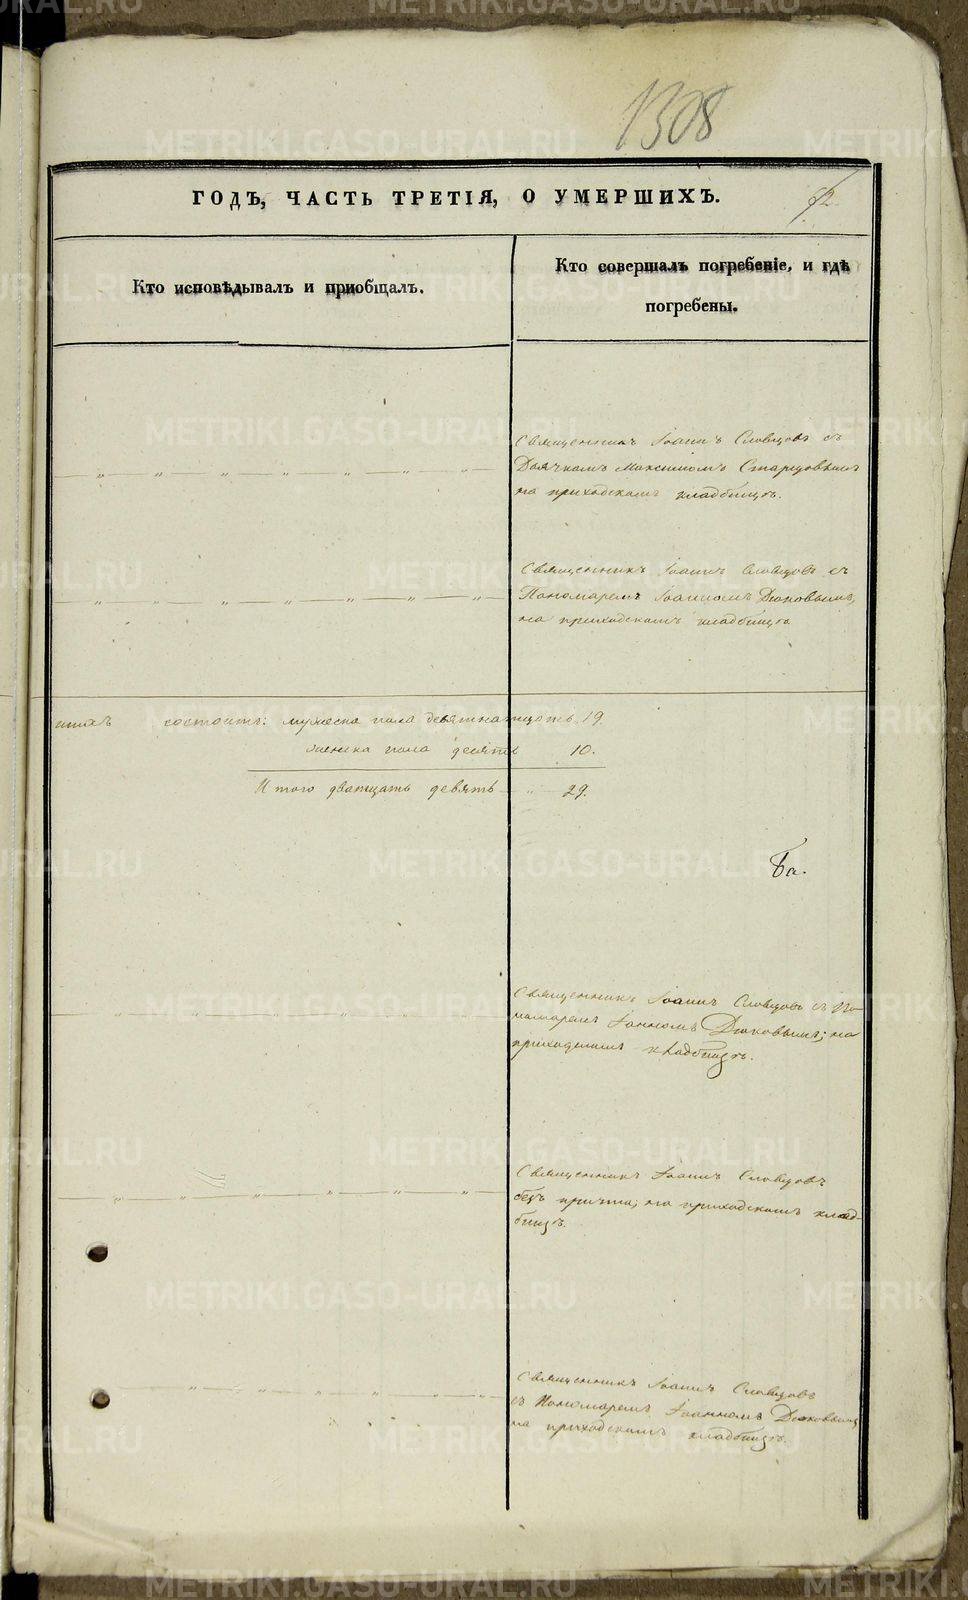 1308
ГОДЪ, ЧАСТЬ ТРЕТІЯ, О УМЕРШИХЪ.
Кто исповѣдывалъ и приобщалъ.
Кто совершалъ погребеніе, и гдѣ
погребены.
Священникъ Іоаннъ Словцовъ съ
Дьячкомъ Максимомъ Старцовымъ
на приходскомъ кладбищѣ.
Священникъ Іоаннъ Словцовъ съ
Пономаремъ Іоанномъ Дюковымъ,
на приходскомъ кладбищѣ.
состоитъ: мужеска пола девятнатцать 19.
женска пола десять 10.
Итого дватцать девять " 29.
Священникъ Іоаннъ Словцовъ съ По-
номаремъ Іоанномъ Дюковымъ; на
приходскомъ кладбищѣ.
Священникъ Іоаннъ Словцовъ
безъ причта; на приходскомъ клад-
бищѣ.
Священникъ Іоаннъ Словцовъ
съ Пономаремъ Іоанномъ Дюковымъ
на приходскомъ кладбищѣ.
METRIKI.GASO-URAL.RU